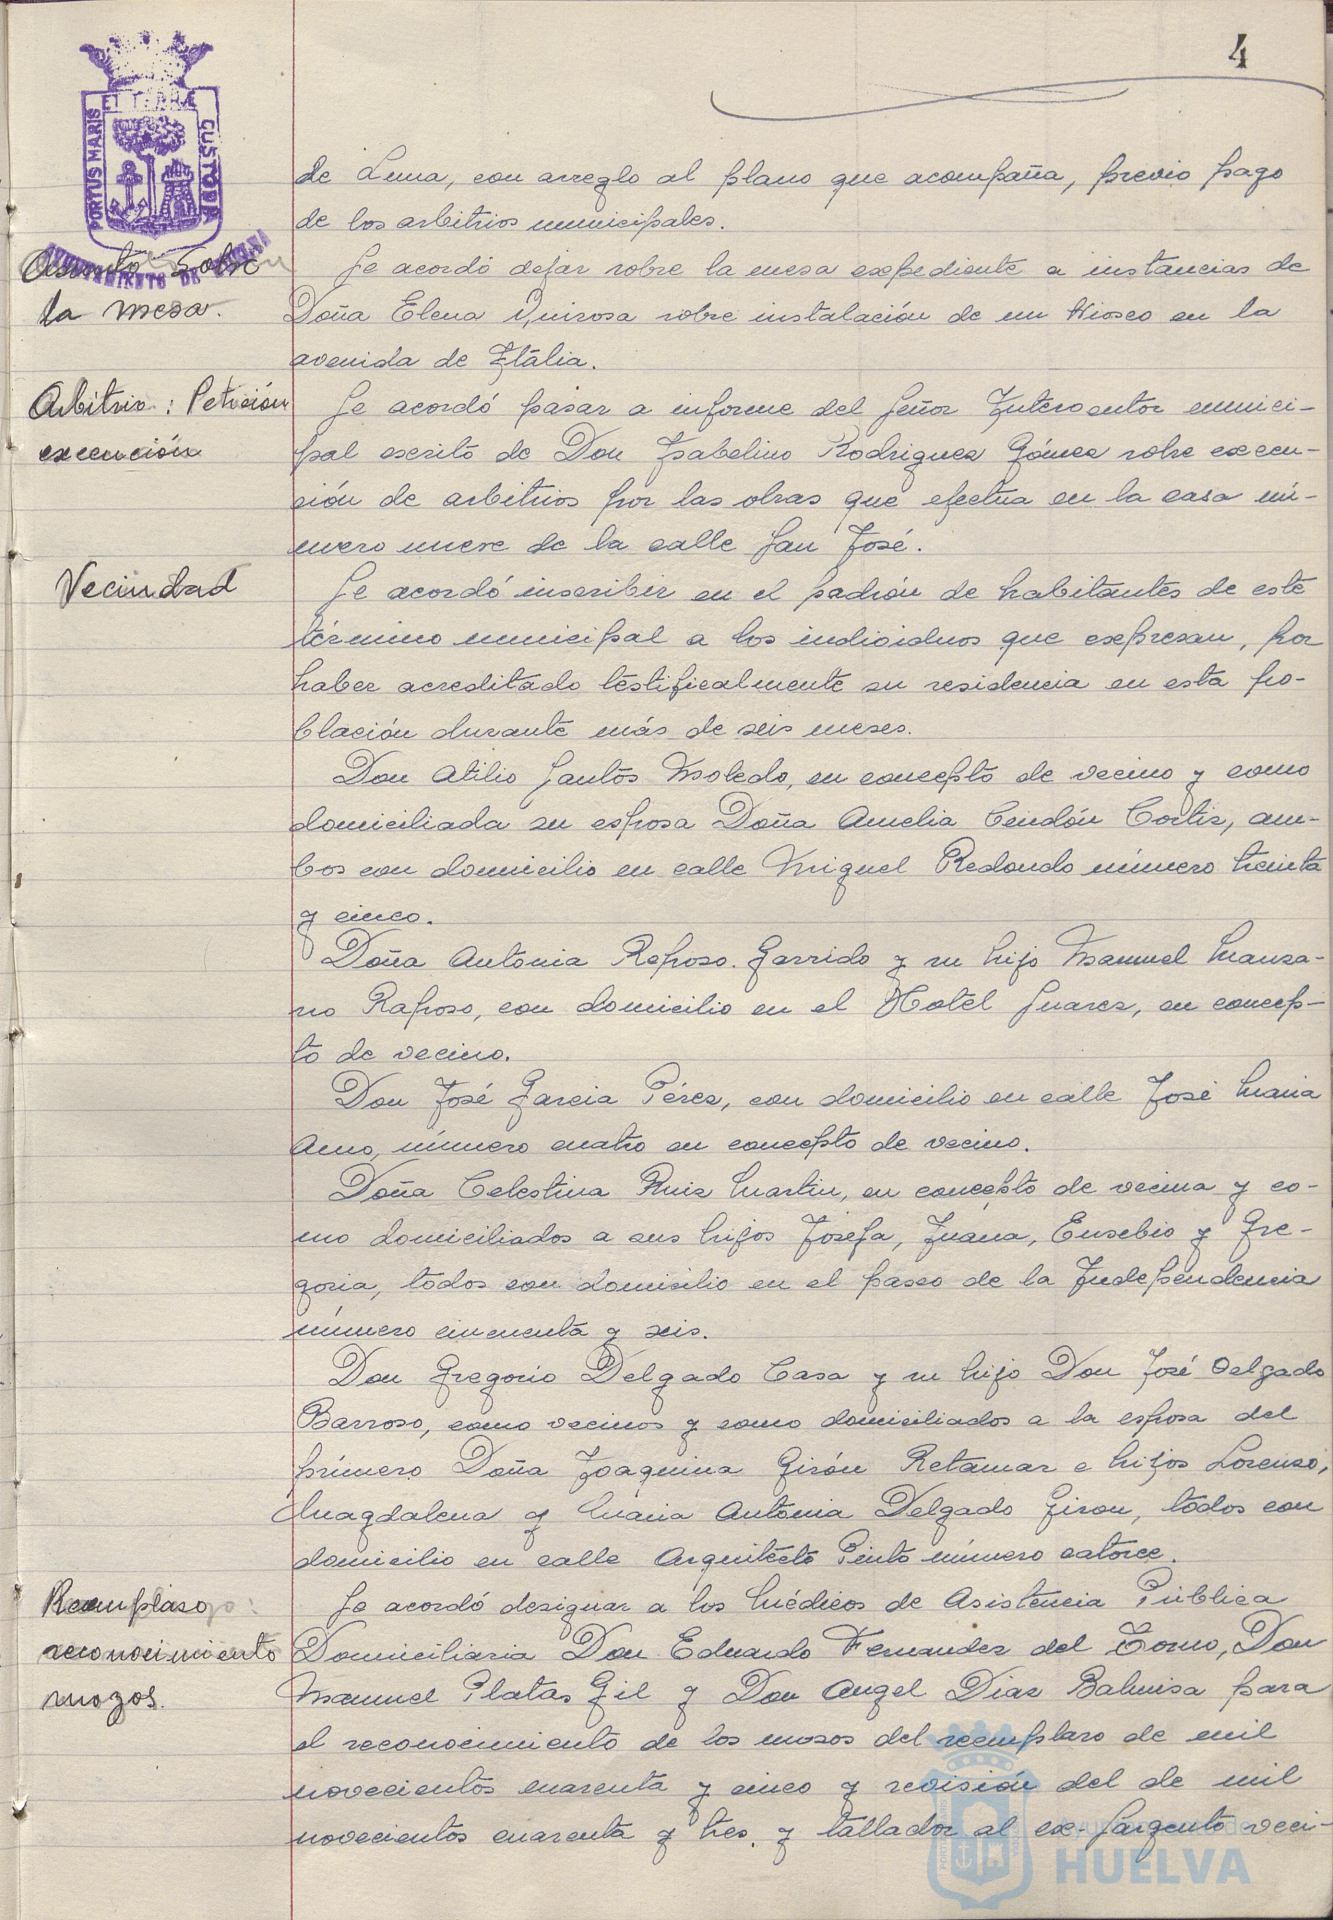 4
PORTUS MARIS ET TERRÆ CUSTODIA
AYUNTAMIENTO DE HUELVA
de Luna, con arreglo al plano que acompaña, previo pago
de los arbitrios municipales.
Asunto sobre
la mesa.
Se acordó dejar sobre la mesa expediente a instancias de
Doña Elena Quirosa sobre instalación de un Kiosco en la
avenida de Itália.
Arbitrio: Petición
execución
Se acordó pasar a informe del Señor Interventor munici-
pal escrito de Don Isabelino Rodriguez Gómez sobre execu-
ción de arbitrios por las obras que efectúa en la casa nú-
mero nueve de la calle San José.
Vecindad
Se acordó inscribir en el padrón de habitantes de este
término municipal a los individuos que expresan, por
haber acreditado testificalmente su residencia en esta po-
blación durante más de seis meses.
Don Atilio Santos Moledo, en concepto de vecino y como
domiciliada su esposa Doña Amelia Cendón Cortiz, am-
bos con domicilio en calle Miguel Redondo número treinta
y cinco.
Doña Antonia Raposo Garrido y su hijo Manuel Manza-
no Raposo, con domicilio en el Hotel Suarez, en concep-
to de vecino.
Don José Garcia Pérez, con domicilio en calle José Maria
Amo, número cuatro en concepto de vecino.
Doña Celestina Ruiz Martin, en concepto de vecina y co-
mo domiciliados a sus hijos Josefa, Juana, Eusebio y Gre-
goria, todos con domicilio en el paseo de la Independencia
número cincuenta y seis.
Don Gregorio Delgado Casa y su hijo Don José Delgado
Barroso, como vecinos y como domiciliados a la esposa del
primero Doña Joaquina Girón Retamar e hijos Lorenzo,
Magdalena y Maria Antonia Delgado Giron, todos con
domicilio en calle Arquitecto Pinto número catorce.
Reemplazo:
reconocimiento
mozos.
Se acordó designar a los Médicos de Asistencia Pública
Domiciliaria Don Eduardo Fernandez del Torno, Don
Manuel Platas Gil y Don Angel Diaz Balmisa para
el reconocimiento de los mozos del reemplazo de mil
novecientos cuarenta y cinco y revisión del de mil
novecientos cuarenta y tres, y tallador al ex-Sargento veci-
Ayuntamiento de
HUELVA